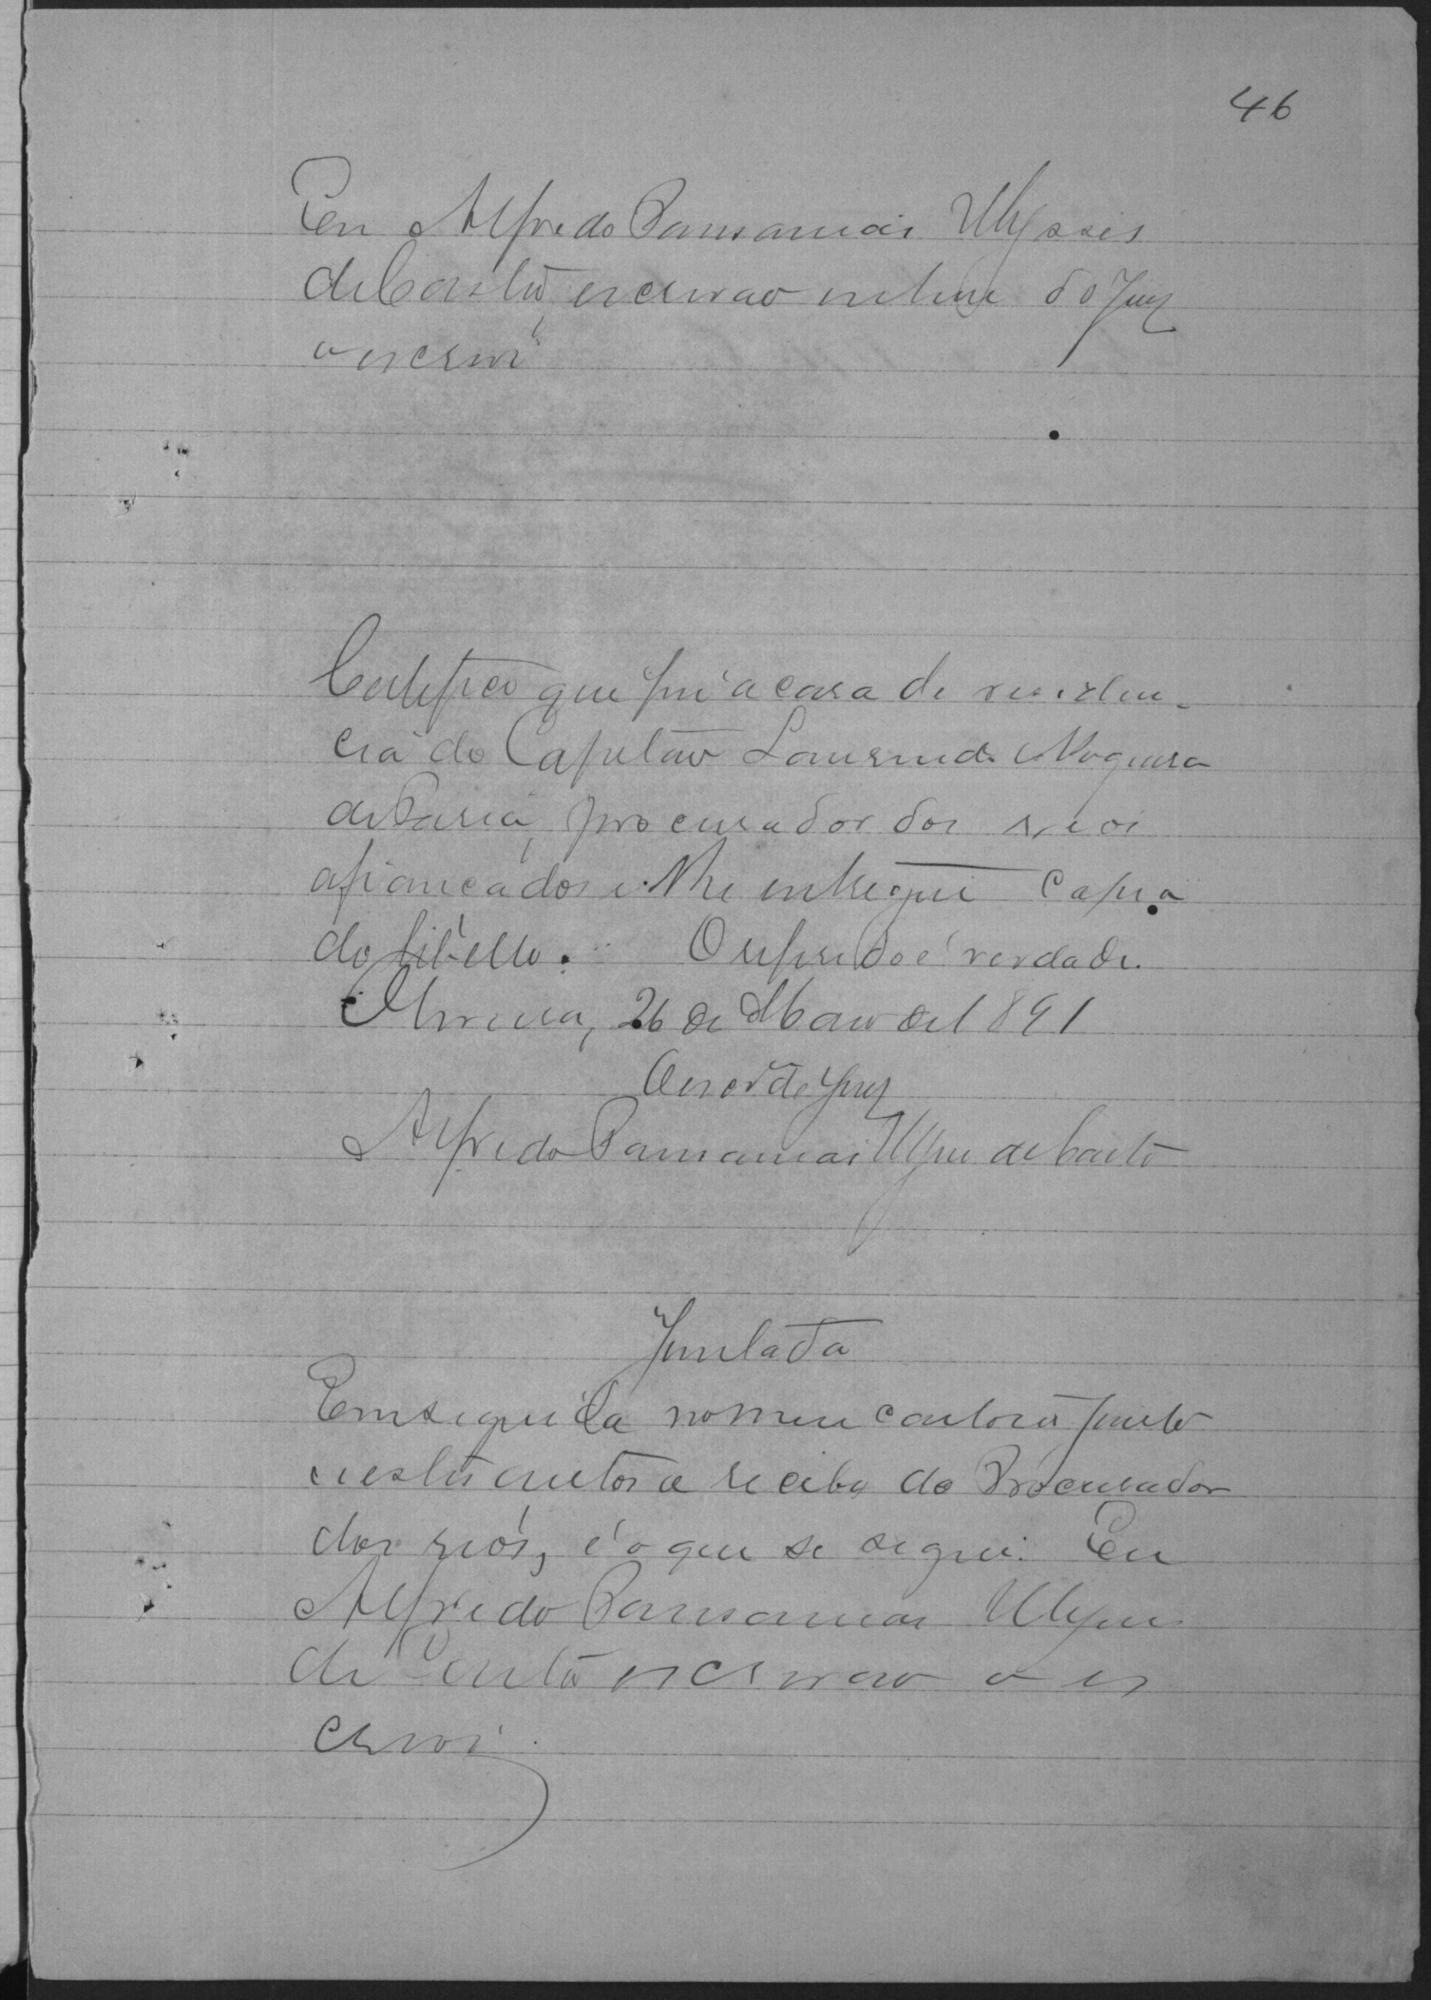 46
Eu Alfredo Pausanias Ulysses
de Couto, escrivao interino do Jury
o escrevi
Certifico que fui a casa de residen-
cia do Capitão Laurindo Nogueira
de Paria, procurador dos reos
afiancados e lhe entreguei copia
do libello. O referido é verdade.
26 de Maio de 1891
O escrº do Jury
Alfredo Pausanias Ulysses de Couto
Juntada
Em seguida no meu cartorio junto
nestes autos o recibo do Procurador
dos reos, é o que se segue. Eu
Alfredo Pausanias Ulysses
de Couto escrivao o es
crevi